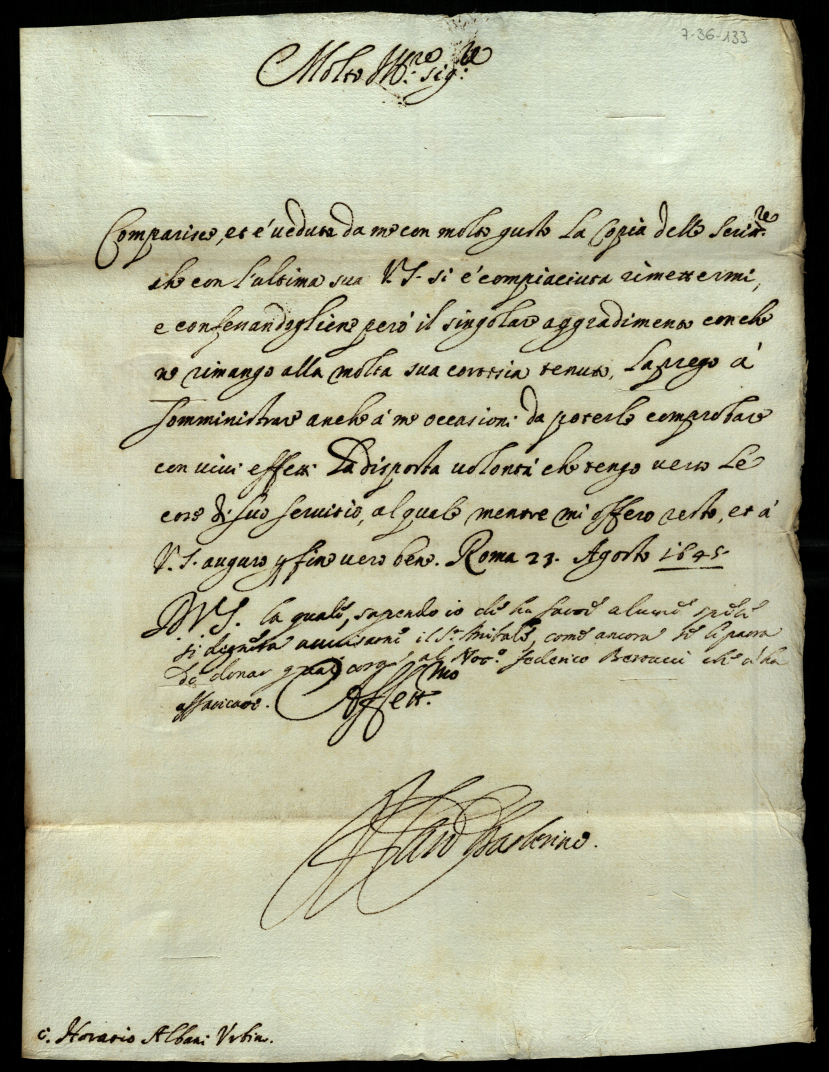 7-36-133
Molto Ill.re sig.re
Comparisce, et è veduta da me con molto gusto La Copia delle Scritt.re
che con l'ultima sua V.S. si è compiaciuta rimettermi,
e confessandogliene però il singolar aggradimento con che
ne rimango alla molta sua cortesia tenuto, La prego à
somministrare anche à me occasioni da poterle comprobare
con vivi effetti La disposta volontà che tengo verso Le
cose di suo servitio, al quale mentre mi offero resto, et à
V.S. auguro p fine vero bene. Roma 23. Agosto 1645
la quale, sapendo io che ha
si degnerà avvisarne il S.r come ancora se li para
da donar al Federico che ci ha
affaticato. Aff.mo
Barberino.
c. Horatio Albani Urbin.